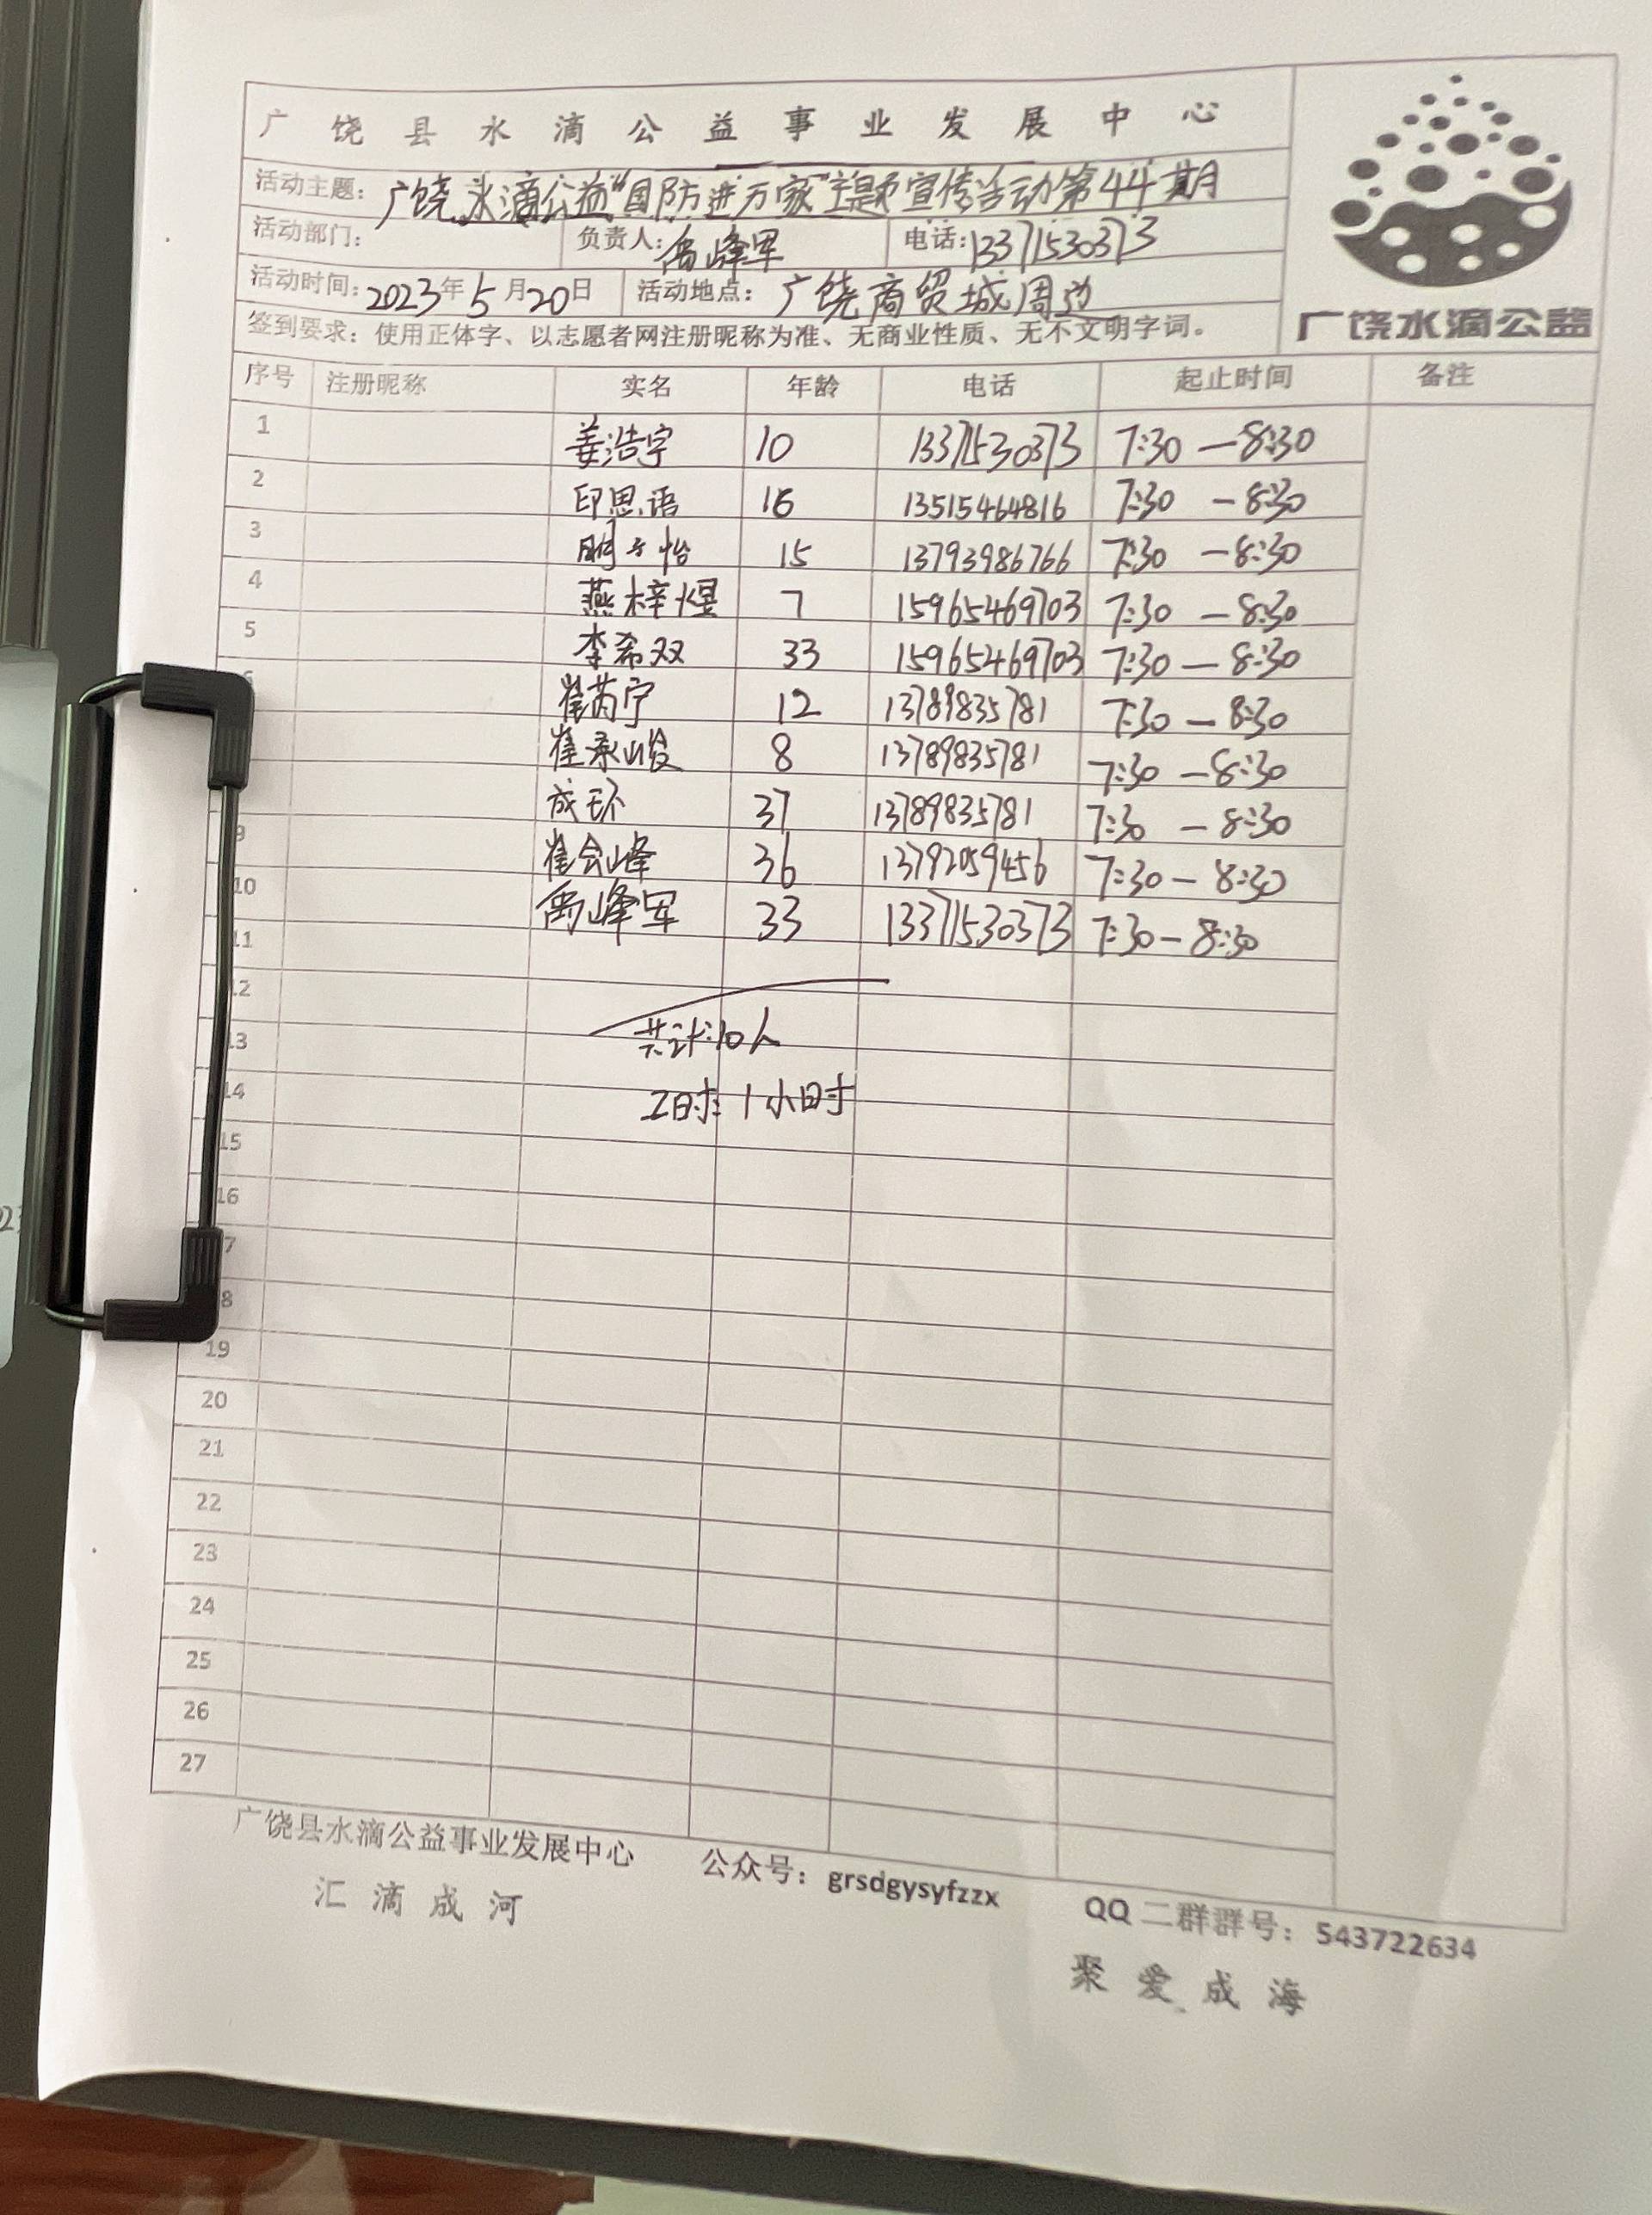 广饶县水滴公益事业发展中心
活动主题：广饶水滴公益“国防进万家”主题宣传活动第44期
活动部门： 负责人：禹峰军 电话：13371530373
活动时间：2023年5月20日 活动地点：广饶商贸城周边
签到要求：使用正体字、以志愿者网注册昵称为准、无商业性质、无不文明字词。
广饶水滴公益
序号 注册昵称 实名 年龄 电话 起止时间 备注
1 姜浩宇 10 13371530373 7:30 — 8:30
2 印思语 16 13515464816 7:30 — 8:30
3 15 13793986766 7:30 — 8:30
4 燕梓煜 7 15965469703 7:30 — 8:30
5 李希双 33 15965469703 7:30 — 8:30
崔芮宁 12 13789835781 7:30 — 8:30
崔承峻 8 13789835781 7:30 — 8:30
成环 37 13789835781 7:30 — 8:30
9 崔会峰 36 13792059456 7:30 — 8:30
10 禹峰军 33 13371530373 7:30 — 8:30
11
12
13 共计：10人
14 工时：1小时
15
16
7
8
19
20
21
22
23
24
25
26
27
广饶县水滴公益事业发展中心 公众号：grsdgysyfzzx QQ二群群号：543722634
汇滴成河 聚爱成海